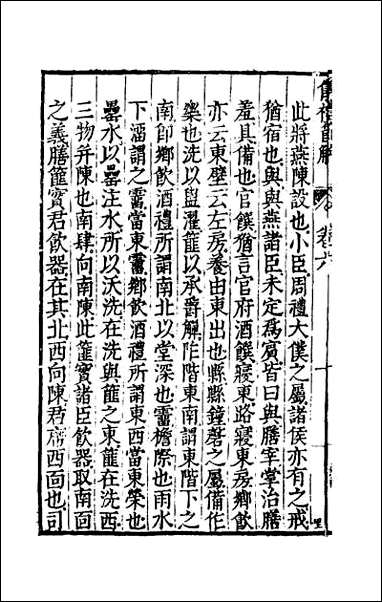 此將燕陳設也小臣周禮大僕之屬諸侯亦有之戒
猶宿也與與燕諸臣未定為賓皆曰與膳宰掌治膳
羞具備也官饌猶言官府酒饌寢東路寢東房鄉飲
亦云東壁云左房養由東出也縣縣鐘磬之屬備作
樂也洗以盥濯篚以承爵觶阼階東南謂東階下之
南即鄉飲酒禮所謂南北以堂深也霤檐際也雨水
下溜謂之霤當東霤鄉飲酒禮所謂東西當東榮也
罍水以罍注水所以沃洗在洗與篚之東篚在洗西
三物并陳也南肆向南陳此篚實諸臣飲器取南面
之義膳篚實君飲器在其北西向陳君席西面也司
儀禮節解
卷六